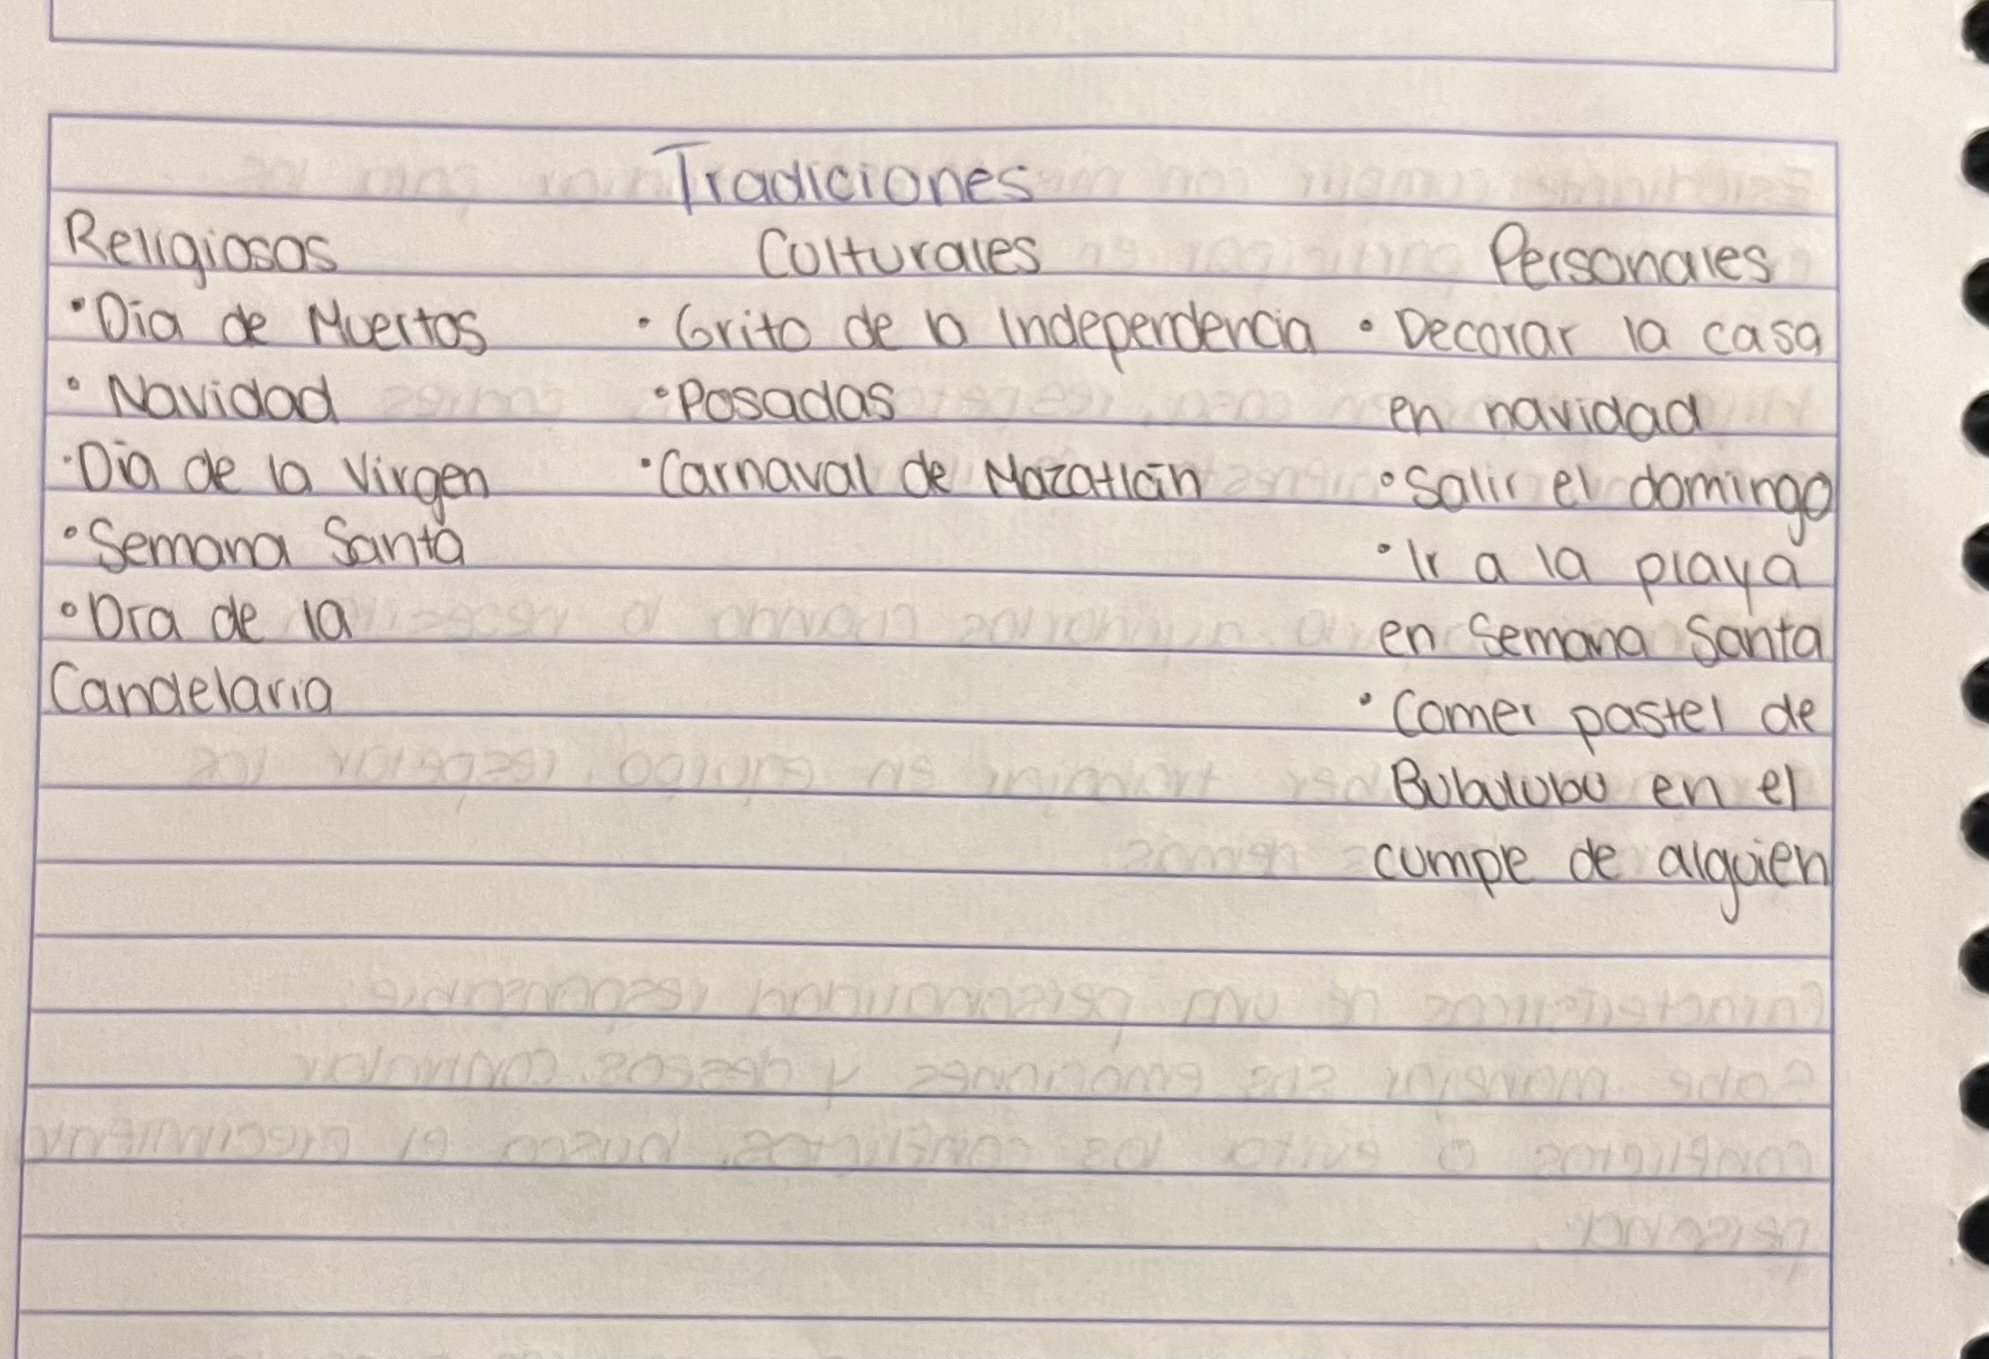 Tradiciones
Religiosos Culturales Personales
•Día de Muertos •Grito de la Independencia •Decorar la casa
•Navidad •Posadas en navidad
•Día de la Virgen •Carnaval de Mazatlán •Salir el domingo
•Semana Santa •Ir a la playa
•Día de la en Semana Santa
Candelaria •Comer pastel de
Bubulubu en el
cumpe de alguien